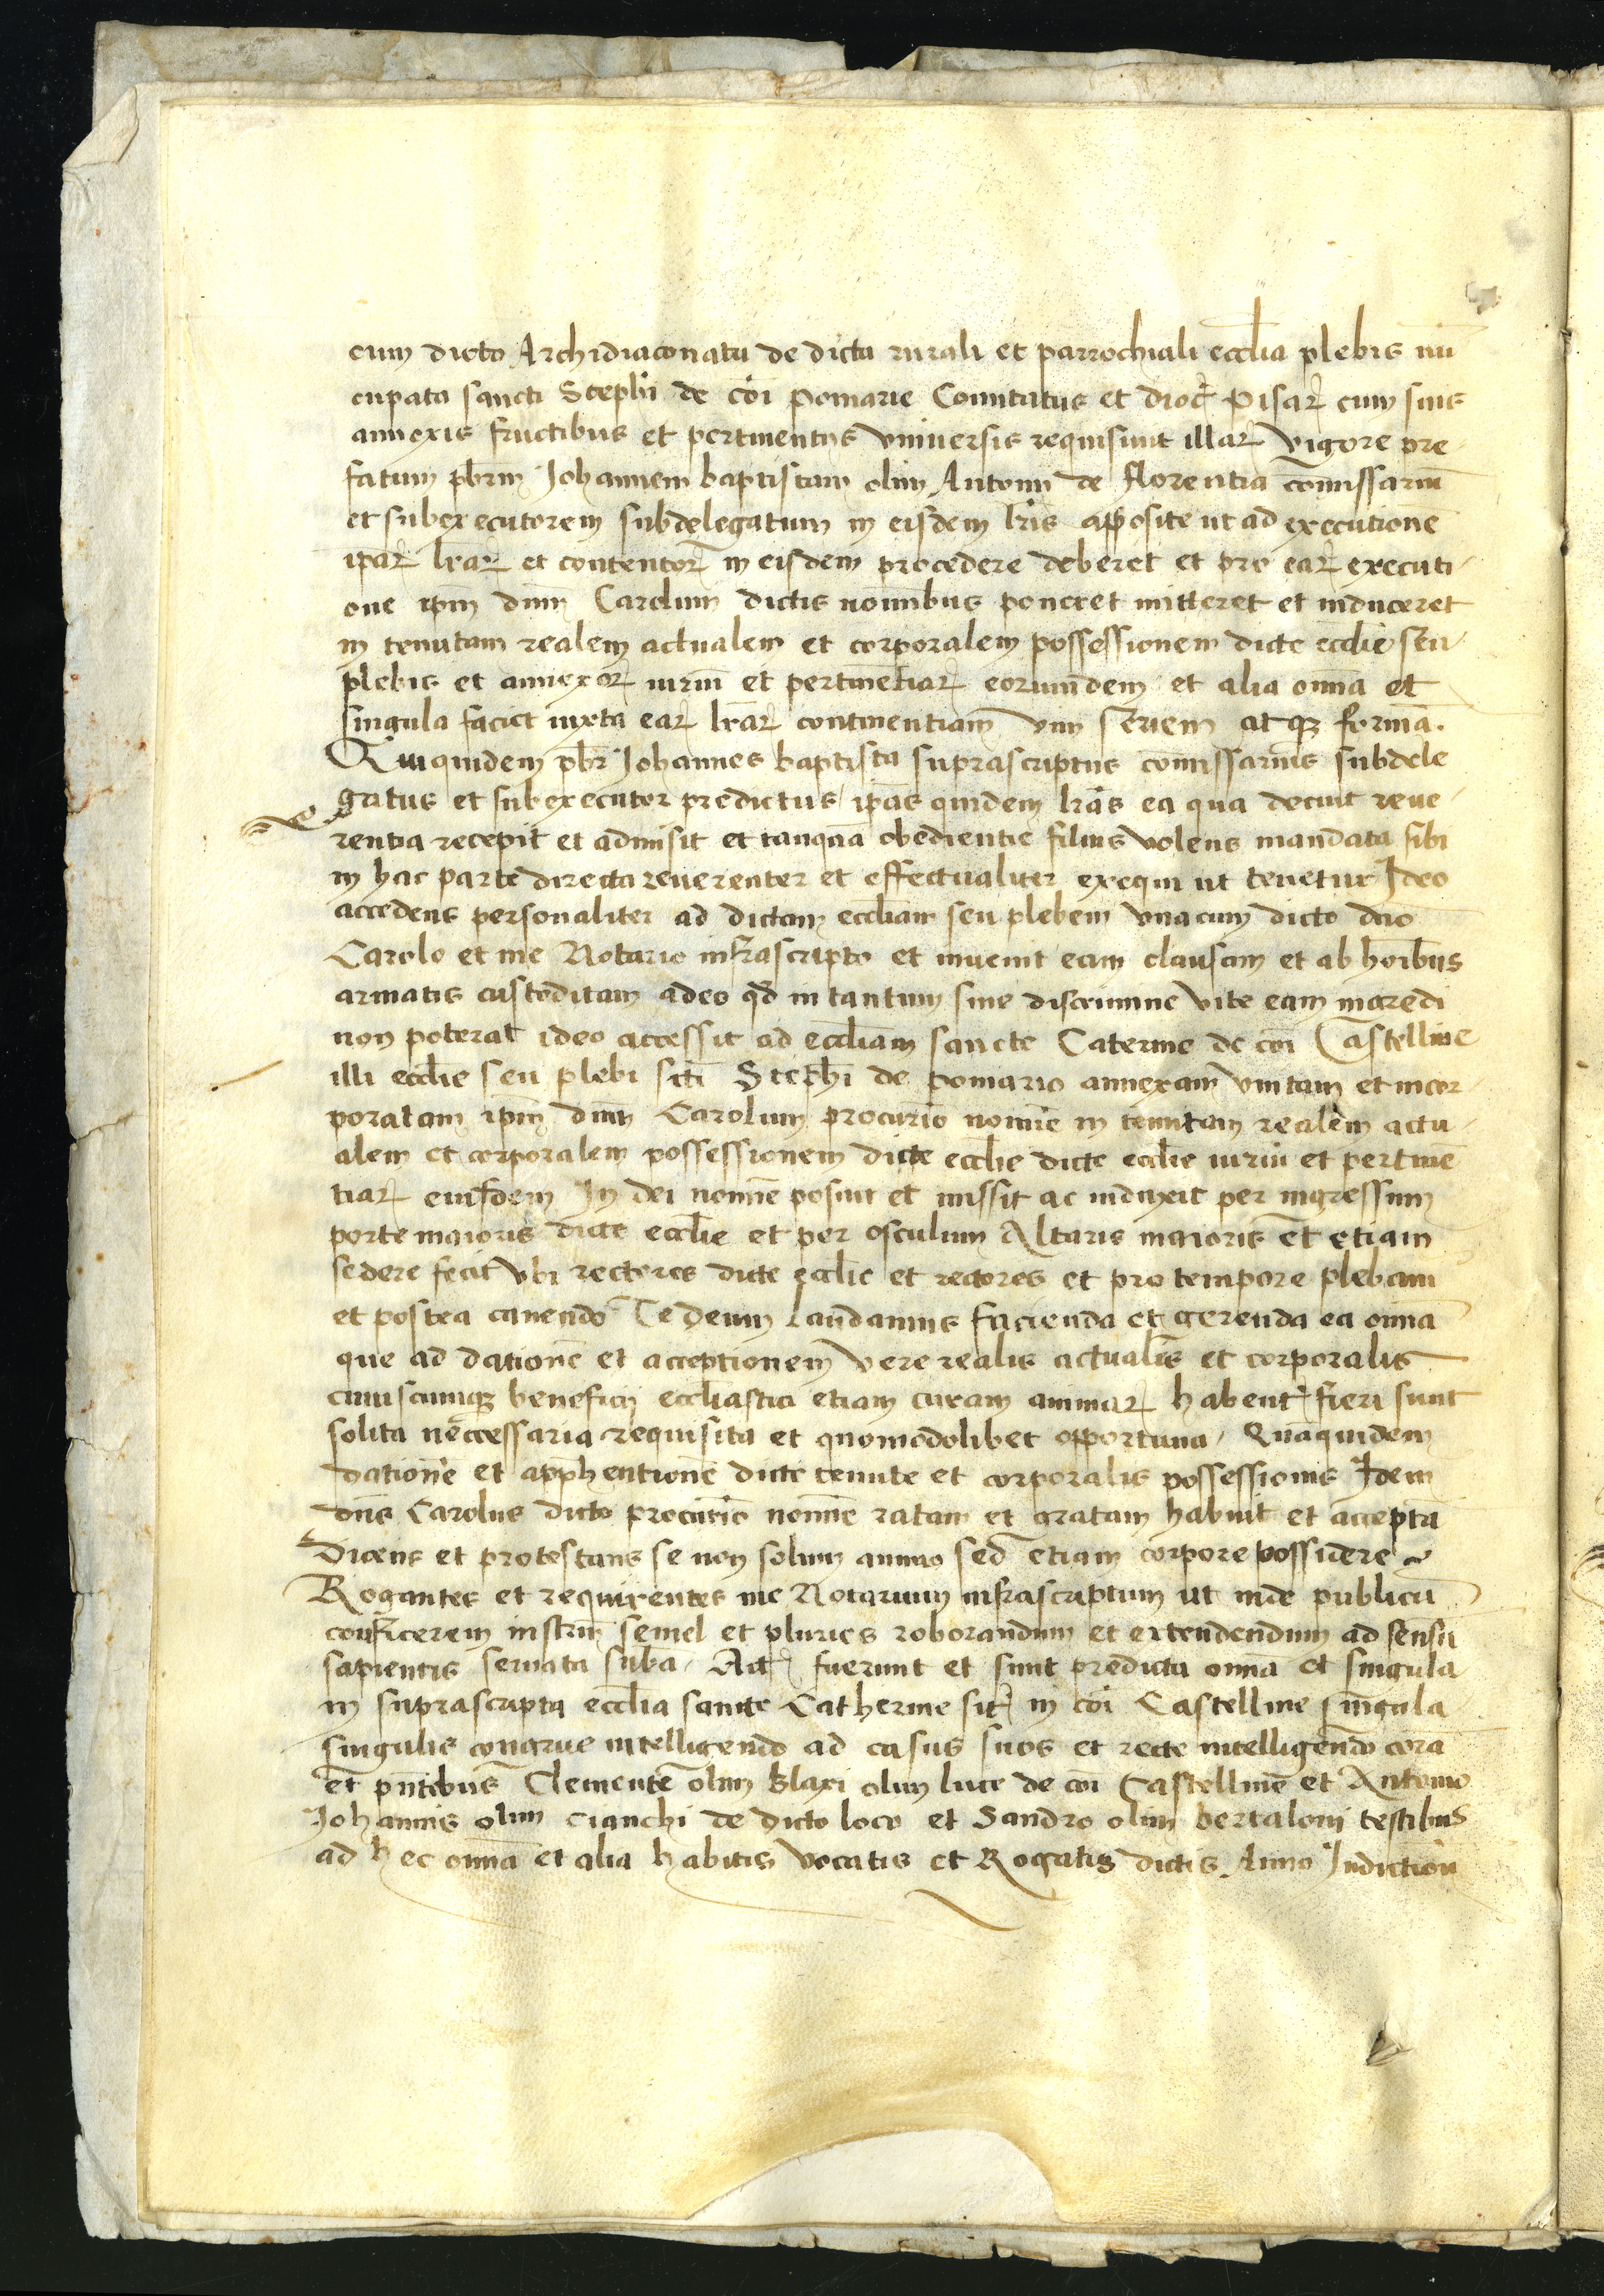 cum dicto Archidiaconatu de dicta rurali et parrochiali ecclia plebis nū
cupata sancti Stephi de cōi pomarie Comitatus et dioc̄ Pisar̄ cum suis
annexis fructibus et pertinentijs vniuersis requisiuit illar̄ vigore pre-
fatum pbrm Johannem baptistam olim Antonij de florentia cōmissariū
et subexecutorem subdelegatum in eisdem lr̄is apposite ut ad executionē
ip̄ar̄ lr̄ar̄ et contentor̄ in eisdem procedere deberet et pro ear̄ executi-
one ip̄m dn̄m Carolum dictis nomībus poneret mitteret et induceret
in tenutam realem actualem et corporalem possessionem dicte ecclie seu
plebis et annexor̄ iuriū et pertinētiar̄ eorumdem et alia om̄ia et
singula faciet iuxta ear̄ lr̄ar̄ continentiam vim seriem atqꝫ formā.
Quiquidem pbr̄ Johannes baptista suprascriptus cōmissarius subdele
gatus et subexecutor predictus ip̄as quidem lr̄as ea qua decuit reue-
rentia recepit et admisit et tanquā obedientie filius volens mandata sibi
in hac parte directa reuerenter et effectualiter exequi ut tenetur Ideo
accedens personaliter ad dictam eccliam seu plebem vnacum dicto dn̄o
Carolo et me Notario infrascripto et inuenit eam clausam et ab hoībus
armatis custoditam adeo qd̄ in tantum sine discrimine vite eam ingredi
non poterat ideo accessit ad eccliam sancte Caterine de cōi Castelline
illi ecclie seu plebi sc̄ti Stephi de pomario annexam vnitam et incor-
poratam ip̄m dn̄m Carolum procur̄io nomīe in tenutam realem actu-
alem et corporalem possessionem dicte ecclie dicte ecclie iuriū et pertinē
tiar̄ eiusdem In dei nomīe posuit et missit ac induxit per ingressum
porte maioris dicte ecclie et per osculum Altaris maioris et etiam
sedere fecit vbi rectores dicte ecclie et rectores et pro tempore plebani
et postea canendo Te Deum laudamus facienda et gerenda ea om̄ia
que ad dationē et acceptionem vere realis actualis et corporalis
cuiuscumqꝫ beneficij eccliastici etiam curam animar̄ habent̄ fieri sunt
solita neccessaria requisita et quomodolibet opportuna. Quāquidem
dationē et apphentionē dicte tenute et corporalis possessionis Idem
dn̄s Carolus dicto procur̄io nomīe ratam et gratam habuit et acceptā
Dicens et protestans se non solum animo sed etiam corpore possidere
Rogantes et requirentes me Notarium infrascriptum ut inde publicū
conficerem instrm̄ semel et pluries roborandum et extendendum ad sensū
sapientis seruata suba. Act̄ fuerunt et sunt predicta om̄ia et singula
in suprascripta ecclia sancte Catherine sit̄ in cōi Castelline singula
singulis congrue intelligendo ad casus suos et recte intelligendo corā
et pn̄tibus Clemente olim Blaxi olim luce de cōi Castelline et Antonio
Johannis olim cianchi de dicto loco et Sandro olim bertaloni testibus
ad hec om̄ia et alia habitis vocatis et Rogatis dictis Anno Indiction̄